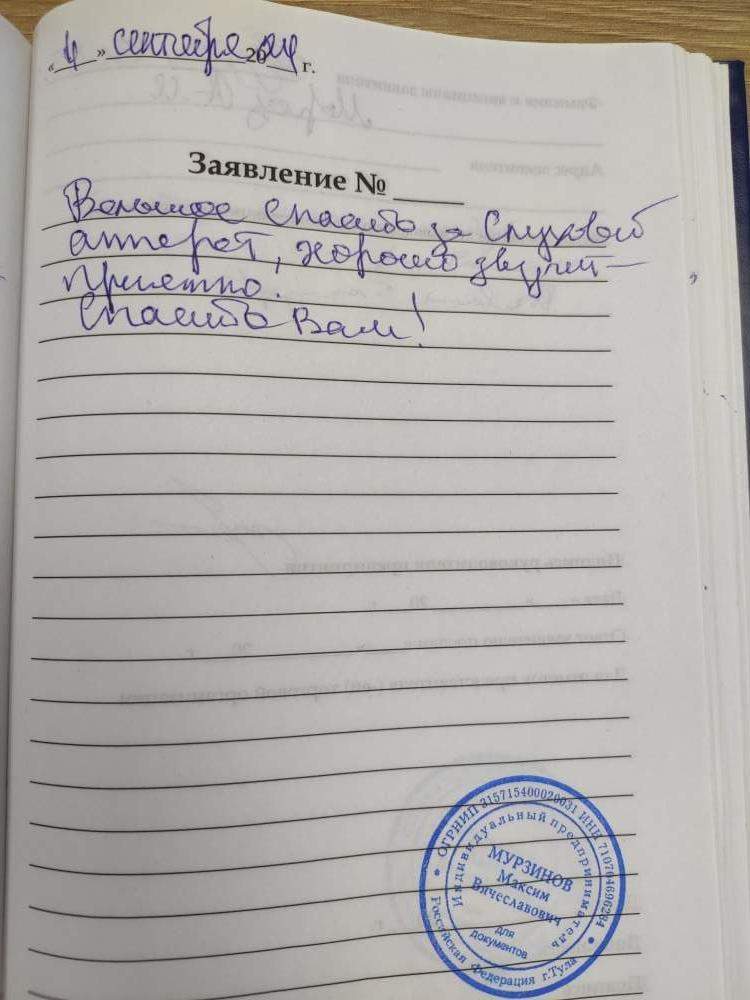 «4» сентября 2024 г.
Заявление №
Большое спасибо за Слуховой
аппарат, хорошо звучит —
приятно.
Спасибо Вам!
ОГРНИП 315715400020031 ИНН 710704696284
Индивидуальный предприниматель
МУРЗИНОВ
Максим
Вячеславович
для
документов
Российская Федерация г.Тула